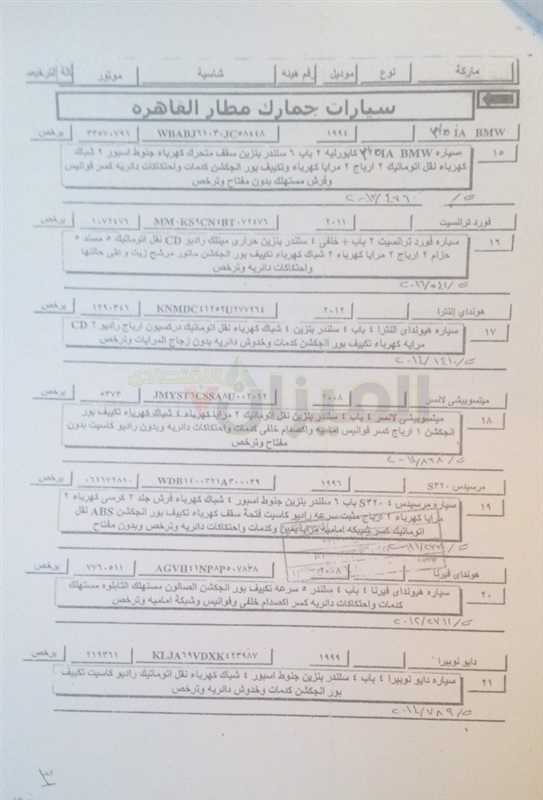 ماركة نوع موديل رقم هيئه شاسية موتور حالة الترخيص
سيارات جمارك مطار القاهره
BMW ٣٢٥ iA ١٩٩٤ WBABJ٦١٠٣٠JC٥٨٤٤٨ ٣٣٥٧٠٧٩٦ يرخص
١٥ سياره BMW ٣٢٥IA كابورليه ٢ باب ٦ سلندر بنزين سقف متحرك كهرباء جنوط اسبور ٢ شباك
كهرباء نقل اتوماتيك ٢ ارباج ٢ مرايا كهرباء وتكييف بور انجكشن كدمات واحتكاكات دائريه كسر فوانيس
وفرش مستهلك بدون مفتاح وترخص
فورد ترانسيت ٢٠١١ يرخص
١٦ سياره فورد ترانسيت ٢ باب + خلفى ٤ سلندر بنزين حرارى ميتلك راديو CD نقل اتوماتيك ٥ مسند ٥
حزام ٢ ارباج ٢ مرايا كهرباء ٢ شباك كهرباء تكييف بور انجكشن ماتور مرشح زيت وعلى حالتها
واحتكاكات دائريه وترخص
هونداي إلنترا ٢٠١٢ KNMDC٤١٢٥٢U٢٧٧٢٦٤ ١٢٩٠٣٤٦ يرخص
١٧ سياره هيونداى النترا ٤ باب ٤ سلندر بنزين ٤ شباك كهرباء نقل اتوماتيك دركسيون ارباج راديو CD ٢
مرايه كهرباء تكييف بور انجكشن كدمات وخدوش دائريه بدون زجاج المرايات وترخص
٢٠١٤/١٤١٠/٥
الميزان الاقتصادي
ميتسوبيشى لانسر ٢٠٠٨ ٥٣٧٣ يرخص
١٨ سياره ميتسوبيشى لانسر ٤ باب ٤ سلندر بنزين نقل اتوماتيك ٢ مرايا كهرباء ٤ شباك كهرباء تكييف بور
انجكشن ١ ارباج كسر فوانيس اماميه واكصدام خلفى كدمات واحتكاكات دائريه وبدون راديو كاسيت بدون
مفتاح وترخص
مرسيدس S٣٢٠ ١٩٩٦ WDB١٤٠٠٣٢١A٣٠٠٠٣٩ ٠٦١٦٧٢٨١٠ يرخص
١٩ سياره مرسيدس S٣٢٠ ٤ باب ٦ سلندر بنزين جنوط اسبور ٤ شباك كهرباء فرش جلد ٢ كرسى كهرباء ٢
مرايا كهرباء ٢ ارباج مثبت سرعه راديو كاسيت فتحة سقف كهرباء تكييف بور انجكشن ABS نقل
اتوماتيك كسر شبكه اماميه مرايا يمين وكدمات واحتكاكات دائريه وترخص وبدون مفتاح
هونداى فيرنا ٢٠٠٨ AGVH٤١NP٨P٥٠٧٨٣٨ ٧٧٦٠٥١١ يرخص
٢٠ سياره هيونداى فيرنا ٤ باب ٤ سلندر ٥ سرعه تكييف بور انجكشن الصالون مستهلك التابلوه مستهلك
كدمات واحتكاكات دائريه كسر اكصدام خلفى وفوانيس وشبكة اماميه وترخص
٢٠١٢/٢٧٦١/٥
دايو نوبيرا ١٩٩٩ KLJA٦٩VDXK٤٢٣٩٨٧ ٢١٩٣٦١ يرخص
٢١ سياره دايو نوبيرا ٤ باب ٤ سلندر بنزين جنوط اسبور ٤ شباك كهرباء نقل اتوماتيك راديو كاسيت تكييف
بور انجكشن كدمات وخدوش دائريه وترخص
٢٠١٤/٧٨٩/٥
٣